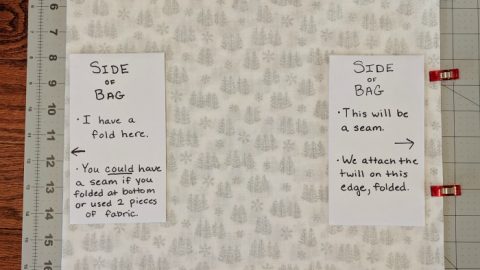 6
7
8
9
10
11
12
13
14
15
16
SIDE
OF
BAG
· I have a
fold here.
←
· You could have
a seam if you
folded at bottom
or used 2 pieces
of fabric.
SIDE
OF
BAG
· This will be
a seam.
→
· We attach the
twill on this
edge, folded.